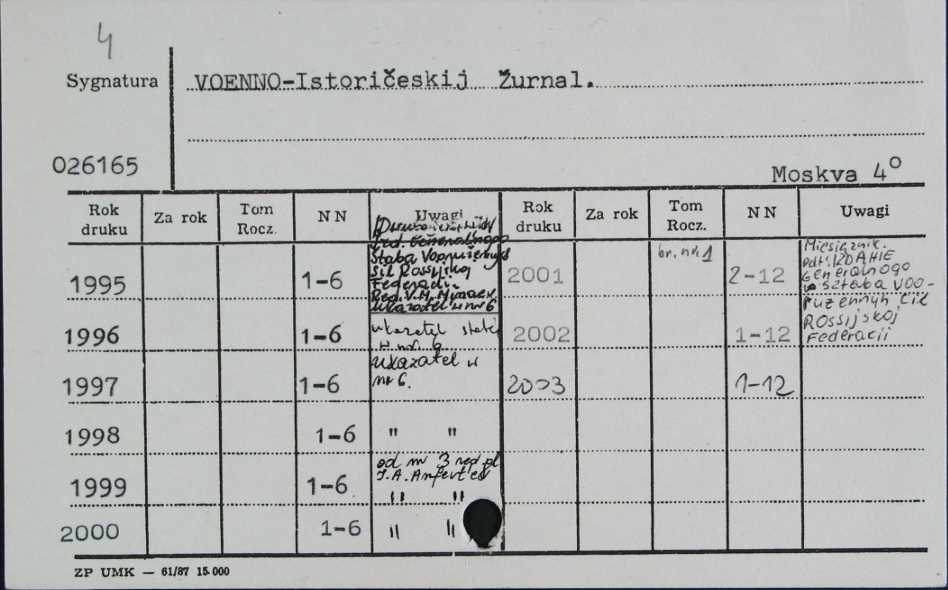 4
Sygnatura VOENNO-Istoričeskij Žurnal.
026165
Moskva 4°
Rok druku Za rok Tom Rocz. NN Uwagi Rok druku Za rok Tom Rocz. NN Uwagi
1995 1-6
Red. Generalnogo
Štaba Vooružennyh
Sil Rossijskoj
Federacii
Red. V.M. Minaev
Ukazatel w nr 6
2001 br. nr 1 2-12
Miesięcznik.
IZDANIE
Generalnogo
sztaba voo-
ružennyh cil
ROSSijskoj
Federacii
1996 1-6 ukazatel statei
w nr. 6
2002 1-12
1997 1-6 Ukazatel w
nr 6.
2003 1-12
1998 1-6 " "
1999 1-6 od nr 3 red.
I.A. Anfertev
" "
2000 1-6 " "
ZP UMK — 61/87 15.000